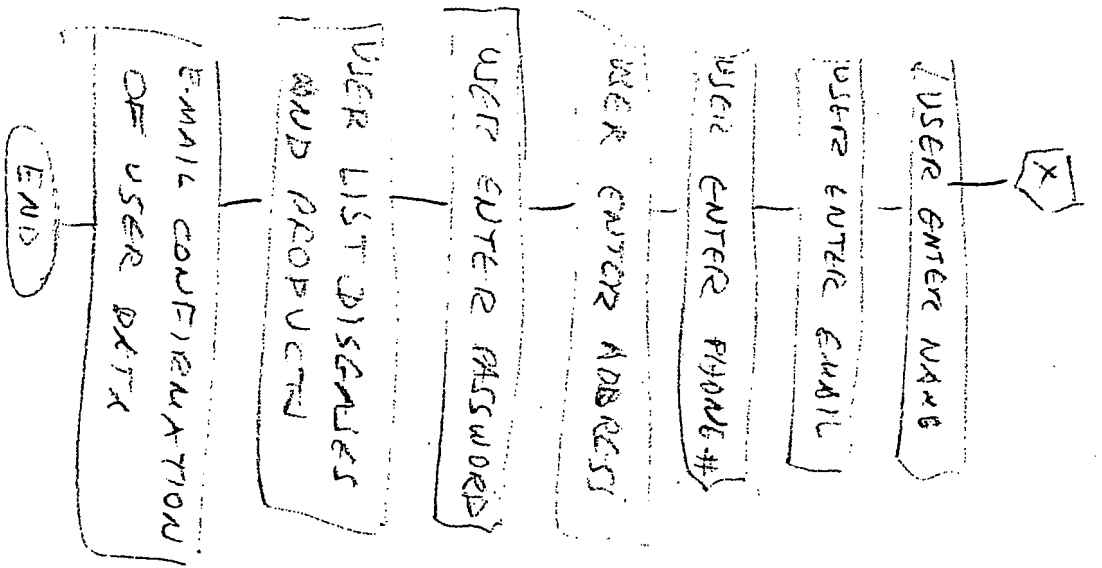 X
USER ENTER NAME
USER ENTER EMAIL
USER ENTER PHONE #
USER ENTER ADDRESS
USER ENTER PASSWORD
USER LIST DISEASES
AND PRODUCTS
E-MAIL CONFIRMATION
OF USER DATA
END